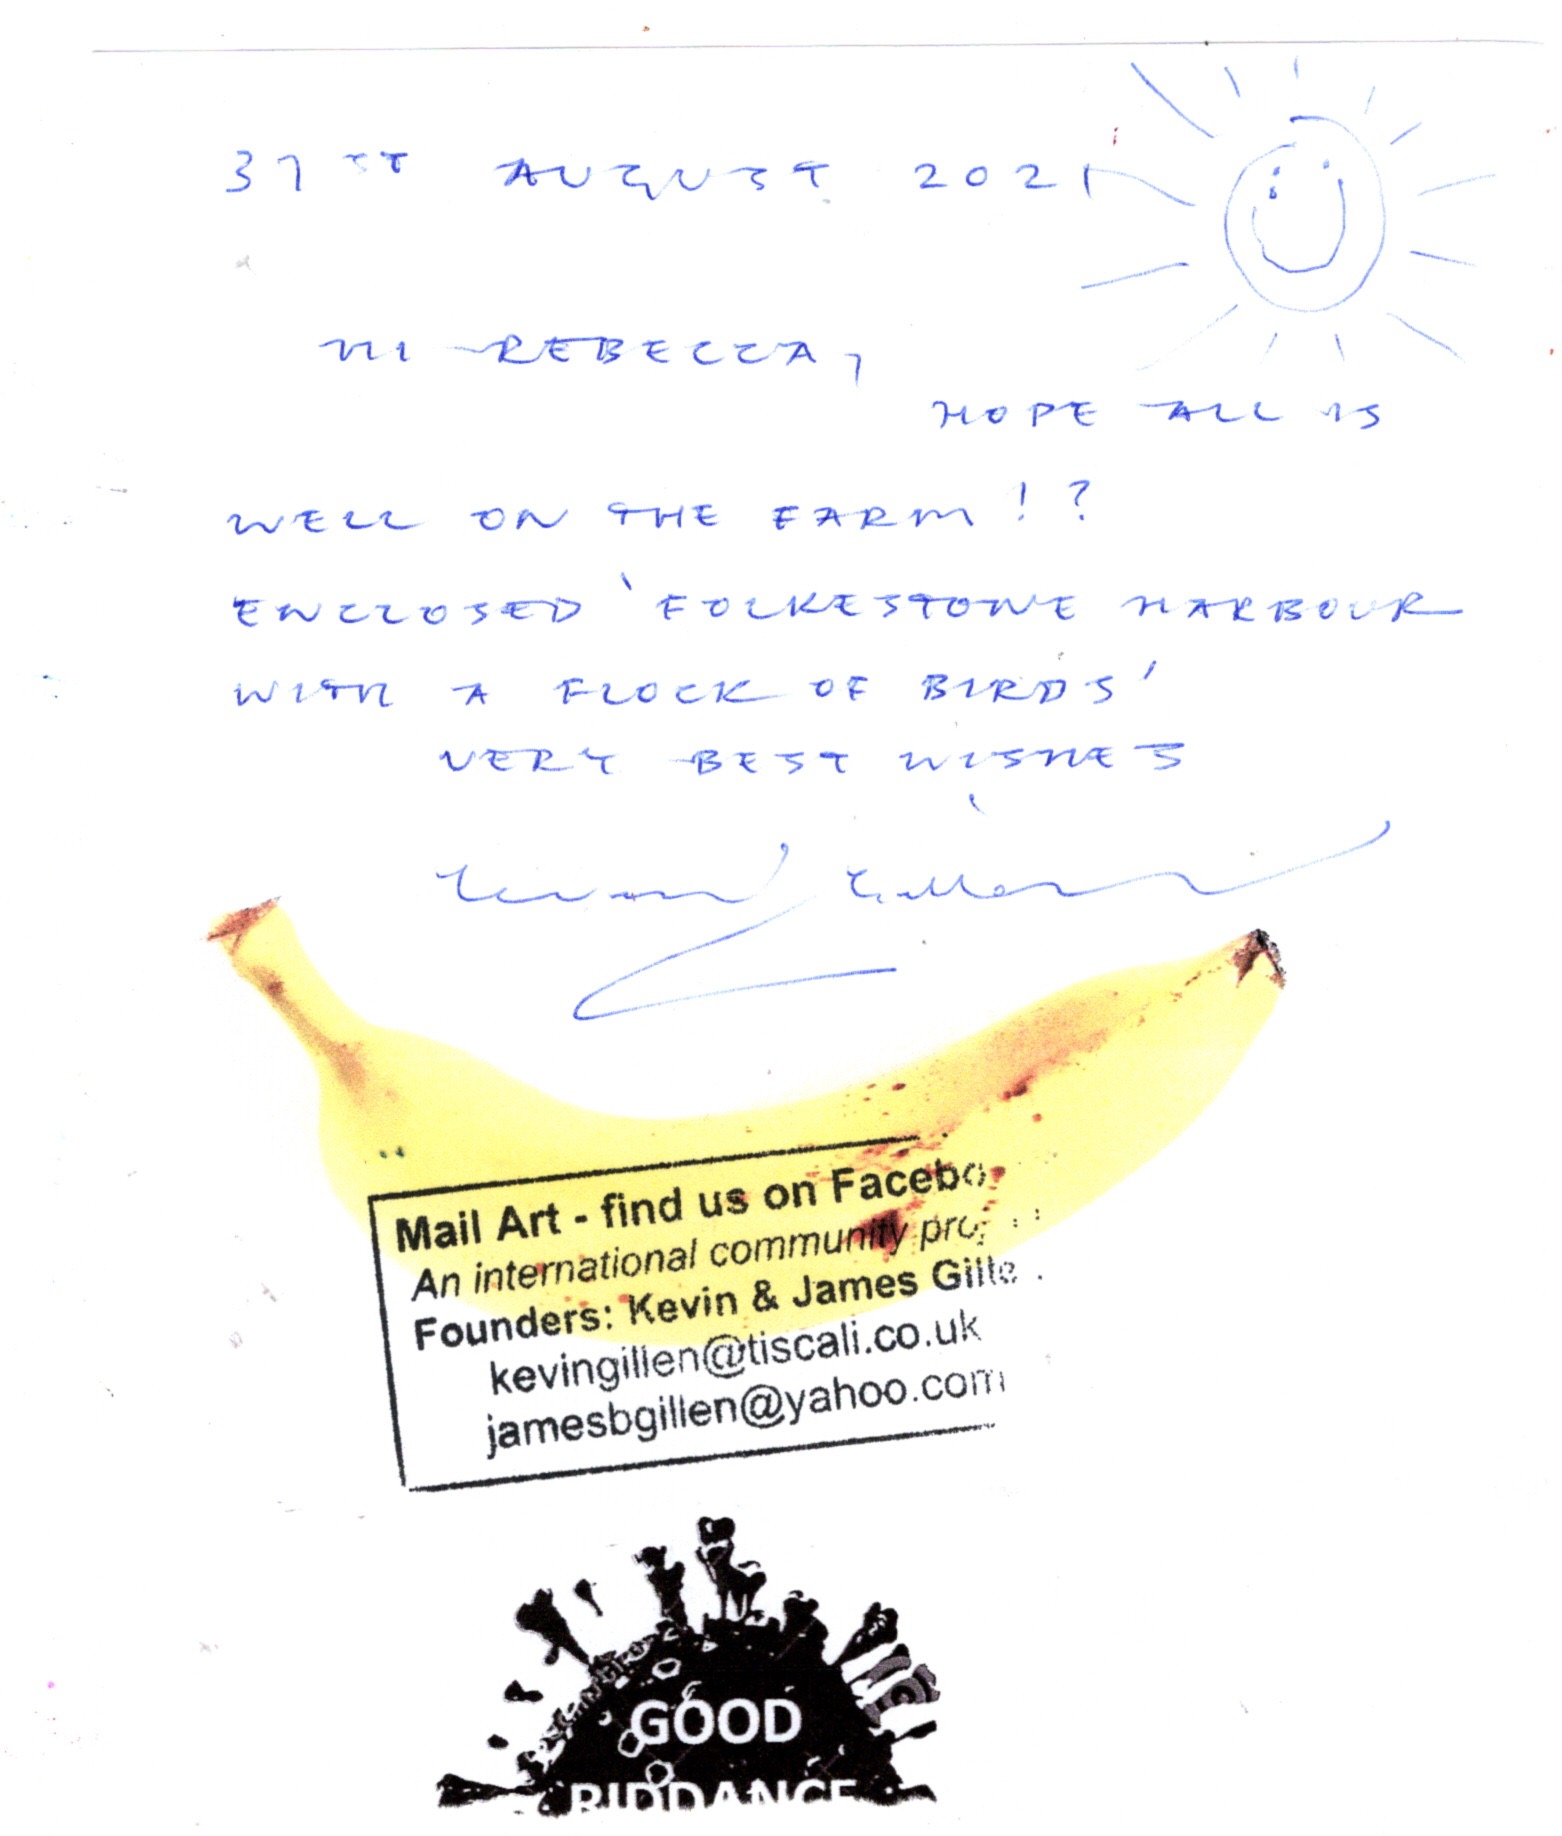 31ST AUGUST 2021
HI REBECCA,
HOPE ALL IS
WELL ON THE FARM!?
ENCLOSED 'FOLKESTONE HARBOUR
WITH A FLOCK OF BIRDS'
VERY BEST WISHES
Kevin Gillen
Mail Art - find us on Facebo
An international community pro
Founders: Kevin & James Gille
kevingillen@tiscali.co.uk
jamesbgillen@yahoo.com
GOOD
RIDDANCE